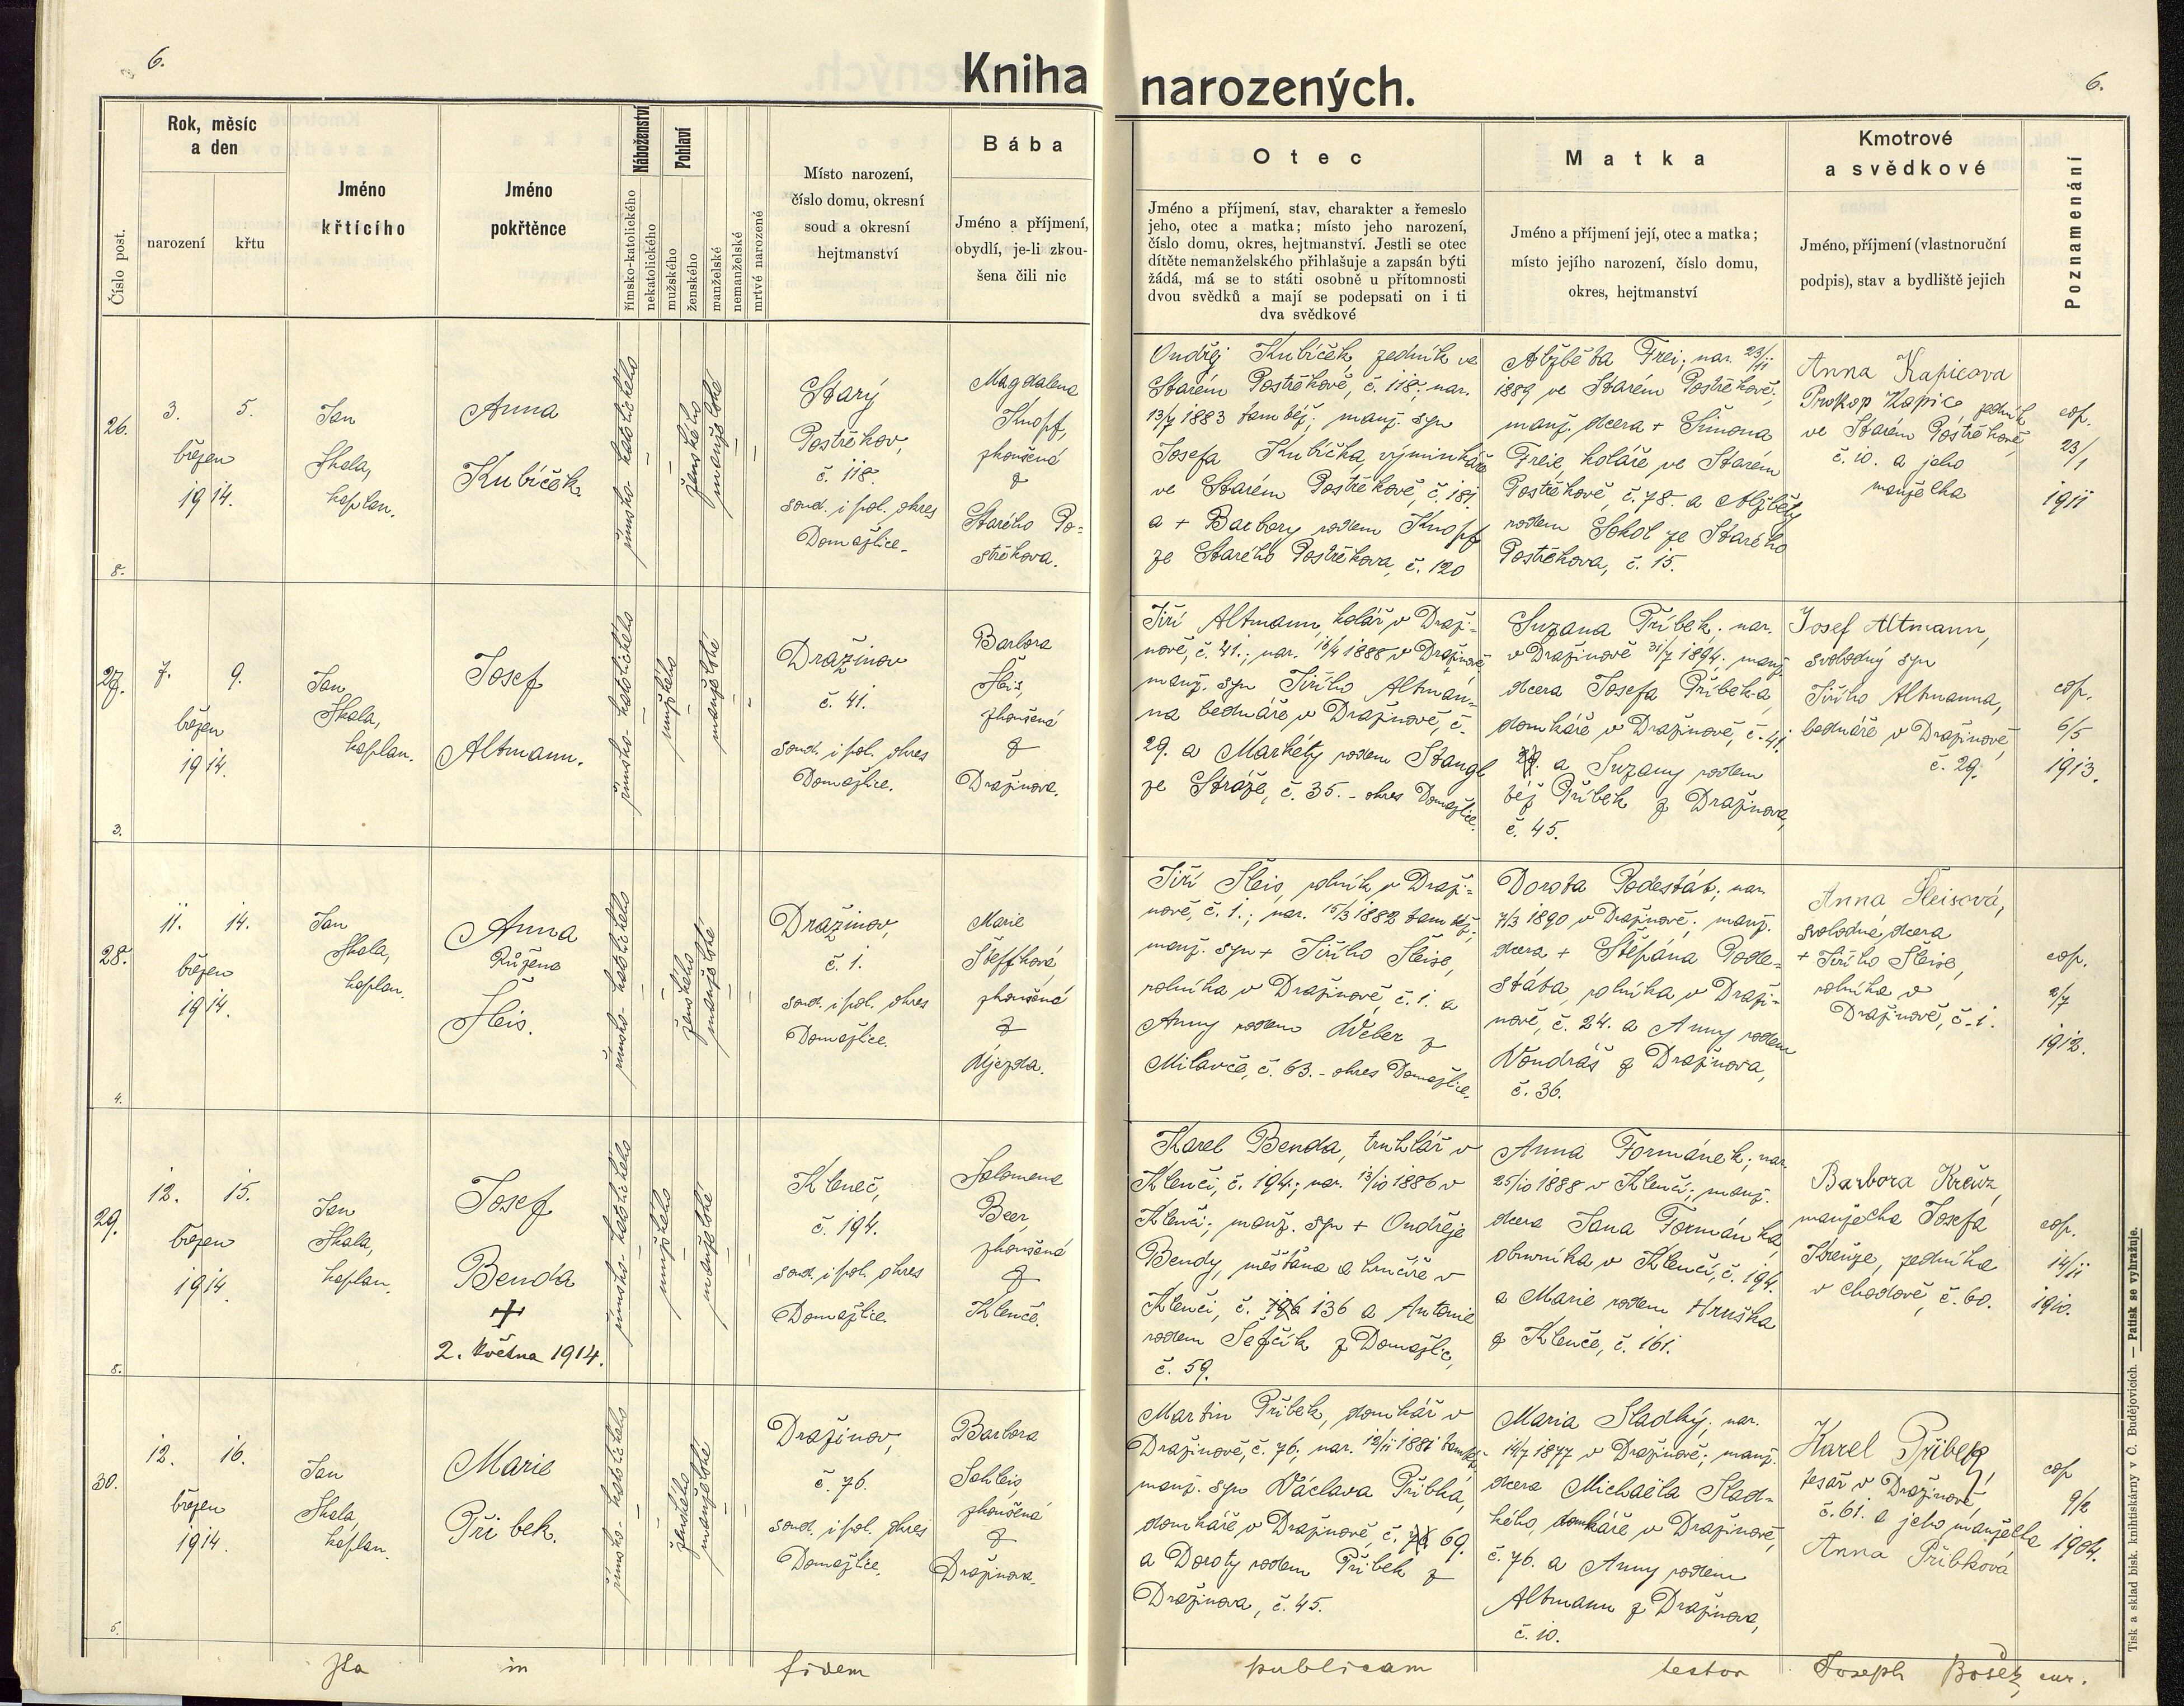 6.
Kniha narozených.
6.
Číslo post.
Rok, měsíc
a den
narození
křtu
Jméno
křtícího
Jméno
pokřtěnce
Náboženství
římsko-katolického
nekatolického
Pohlaví
mužského
ženského
manželské
nemanželské
mrtvé narozené
Místo narození,
číslo domu, okresní
soud a okresní
hejtmanství
Bába
Jméno a příjmení,
obydlí, je-li zkou-
šena čili nic
Otec
Jméno a příjmení, stav, charakter a řemeslo
jeho, otec a matka; místo jeho narození,
číslo domu, okres, hejtmanství. Jestli se otec
dítěte nemanželského přihlašuje a zapsán býti
žádá, má se to státi osobně u přítomnosti
dvou svědků a mají se podepsati on i ti
dva svědkové
Matka
Jméno a příjmení její, otec a matka;
místo jejího narození, číslo domu,
okres, hejtmanství
Kmotrové
a svědkové
Jméno, příjmení (vlastnoruční
podpis), stav a bydliště jejich
Poznamenání
26.
8.
3. 5.
březen
1914.
Jan
Skala,
kaplan.
Anna
Kubíček.
římsko-katolického
ženského
manželské
Starý
Postřekov,
č. 118.
soud. i pol. okres
Domažlice.
Magdalena
Knopf,
zkoušená
z
Starého Po-
střekova.
Ondřej Kubíček, zedník ve
Starém Postřekově, č. 118; nar.
13/7 1883 tamtéž; manž. syn
Josefa Kubíčka, výminkáře
ve Starém Postřekově, č. 181
a + Barbory rodem Knopf
ze Starého Postřekova, č. 120
Alžběta Frei; nar. 23/11
1889 ve Starém Postřekově;
manž. dcera + Šimona
Freie, koláře ve Starém
Postřekově, č. 78. a Alžběty
rodem Sokol ze Starého
Postřekova, č. 15.
Anna Kapicova
Prokop Kapic, zedník
ve Starém Postřekově,
č. 10. a jeho
manželka
cop.
23/1
1911
27.
3.
7. 9.
březen
1914.
Jan
Skala,
kaplan.
Josef
Altmann.
římsko-katolického
mužského
manželské
Dražinov
č. 41.
soud. i pol. okres
Domažlice.
Barbora
Šleis,
zkoušená
z
Dražinova.
Jiří Altmann, kolář v Draži-
nově, č. 41.; nar. 16/4 1888 v Dražinově
manž. syn Jiřího Altman-
na bednáře v Dražinově, č.
29. a Markéty rodem Stangl
ze Stráže, č. 35. - okres Domažlice.
Suzana Příbek; nar.
v Dražinově 31/7 1894; manž.
dcera Josefa Příbek-a
domkáře v Dražinově, č. 41.
a Suzany rodem
též Příbek z Dražinova,
č. 45.
Josef Altmann,
svobodný syn
Jiřího Altmanna,
bednáře v Dražinově,
č. 29.
cop.
6/5
1913.
28.
4.
11. 14.
březen
1914.
Jan
Skala,
kaplan.
Anna
Růžena
Šleis.
římsko-katolického
ženského
manželské
Dražinov,
č. 1.
soud. i pol. okres
Domažlice.
Marie
Šteffková,
zkoušená
z
Újezda.
Jiří Šleis, rolník v Draži-
nově, č. 1.; nar. 15/3 1882 tamtéž;
manž. syn + Jiřího Šleise,
rolníka v Dražinově, č. 1. a
Anny rodem Weber z
Milavče, č. 63. - okres Domažlice.
Dorota Podestát; nar.
7/3 1890 v Dražinově; manž.
dcera + Štěpána Pode-
státa, rolníka v Draži-
nově, č. 24. a Anny rodem
Vondráš z Dražinova,
č. 36.
Anna Šleisová,
svobodná dcera
+ Jiřího Šleise,
rolníka v
Dražinově, č. 1.
cop.
2/7
1912.
29.
5.
12. 15.
březen
1914.
Jan
Skala,
kaplan.
Josef
Benda
+
2. května 1914.
římsko-katolického
mužského
manželské
Kleneč,
č. 194.
soud. i pol. okres
Domažlice.
Salomena
Beer,
zkoušená
z
Klenče.
Karel Benda, truhlář v
Klenči, č. 194.; nar. 13/10 1886 v
Klenči; manž. syn + Ondřeje
Bendy, měšťana a hrnčíře v
Klenči, č. 136 a Antonie
rodem Šefčík z Domažlic,
č. 59.
Anna Formánek; nar.
25/10 1888 v Klenči; manž.
dcera Jana Formánka,
obuvníka v Klenči, č. 194.
a Marie rodem Hruška
z Klenče, č. 161.
Barbora Kreuz,
manželka Josefa
Kreuze, zedníka
v Chodově, č. 60.
cop.
14/11
1910.
30.
5.
12. 16.
březen
1914.
Jan
Skala,
kaplan.
Marie
Příbek.
římsko-katolického
ženského
manželské
Dražinov,
č. 76.
soud. i pol. okres
Domažlice.
Barbora
Schleis,
zkoušená
z
Dražinova.
Martin Příbek, domkář v
Dražinově, č. 76; nar. 12/11 1881 tamtéž;
manž. syn Václava Příbka,
domkáře v Dražinově, č. 69.
a Doroty rodem Příbek z
Dražinova, č. 45.
Maria Sladký; nar.
14/7 1877 v Dražinově; manž.
dcera Michaëla Slad-
kého, domkáře v Dražinově,
č. 76. a Anny rodem
Altmann z Dražinova,
č. 10.
Karel Příbek,
tesař v Dražinově,
č. 61. a jeho manželka
Anna Příbková
cop
9/2
1904.
Ita in fidem publicam testor Joseph Bošek, cur.
Tisk a sklad bisk. knihtiskárny v Č. Budějovicích. — Patisk se vyhražuje.